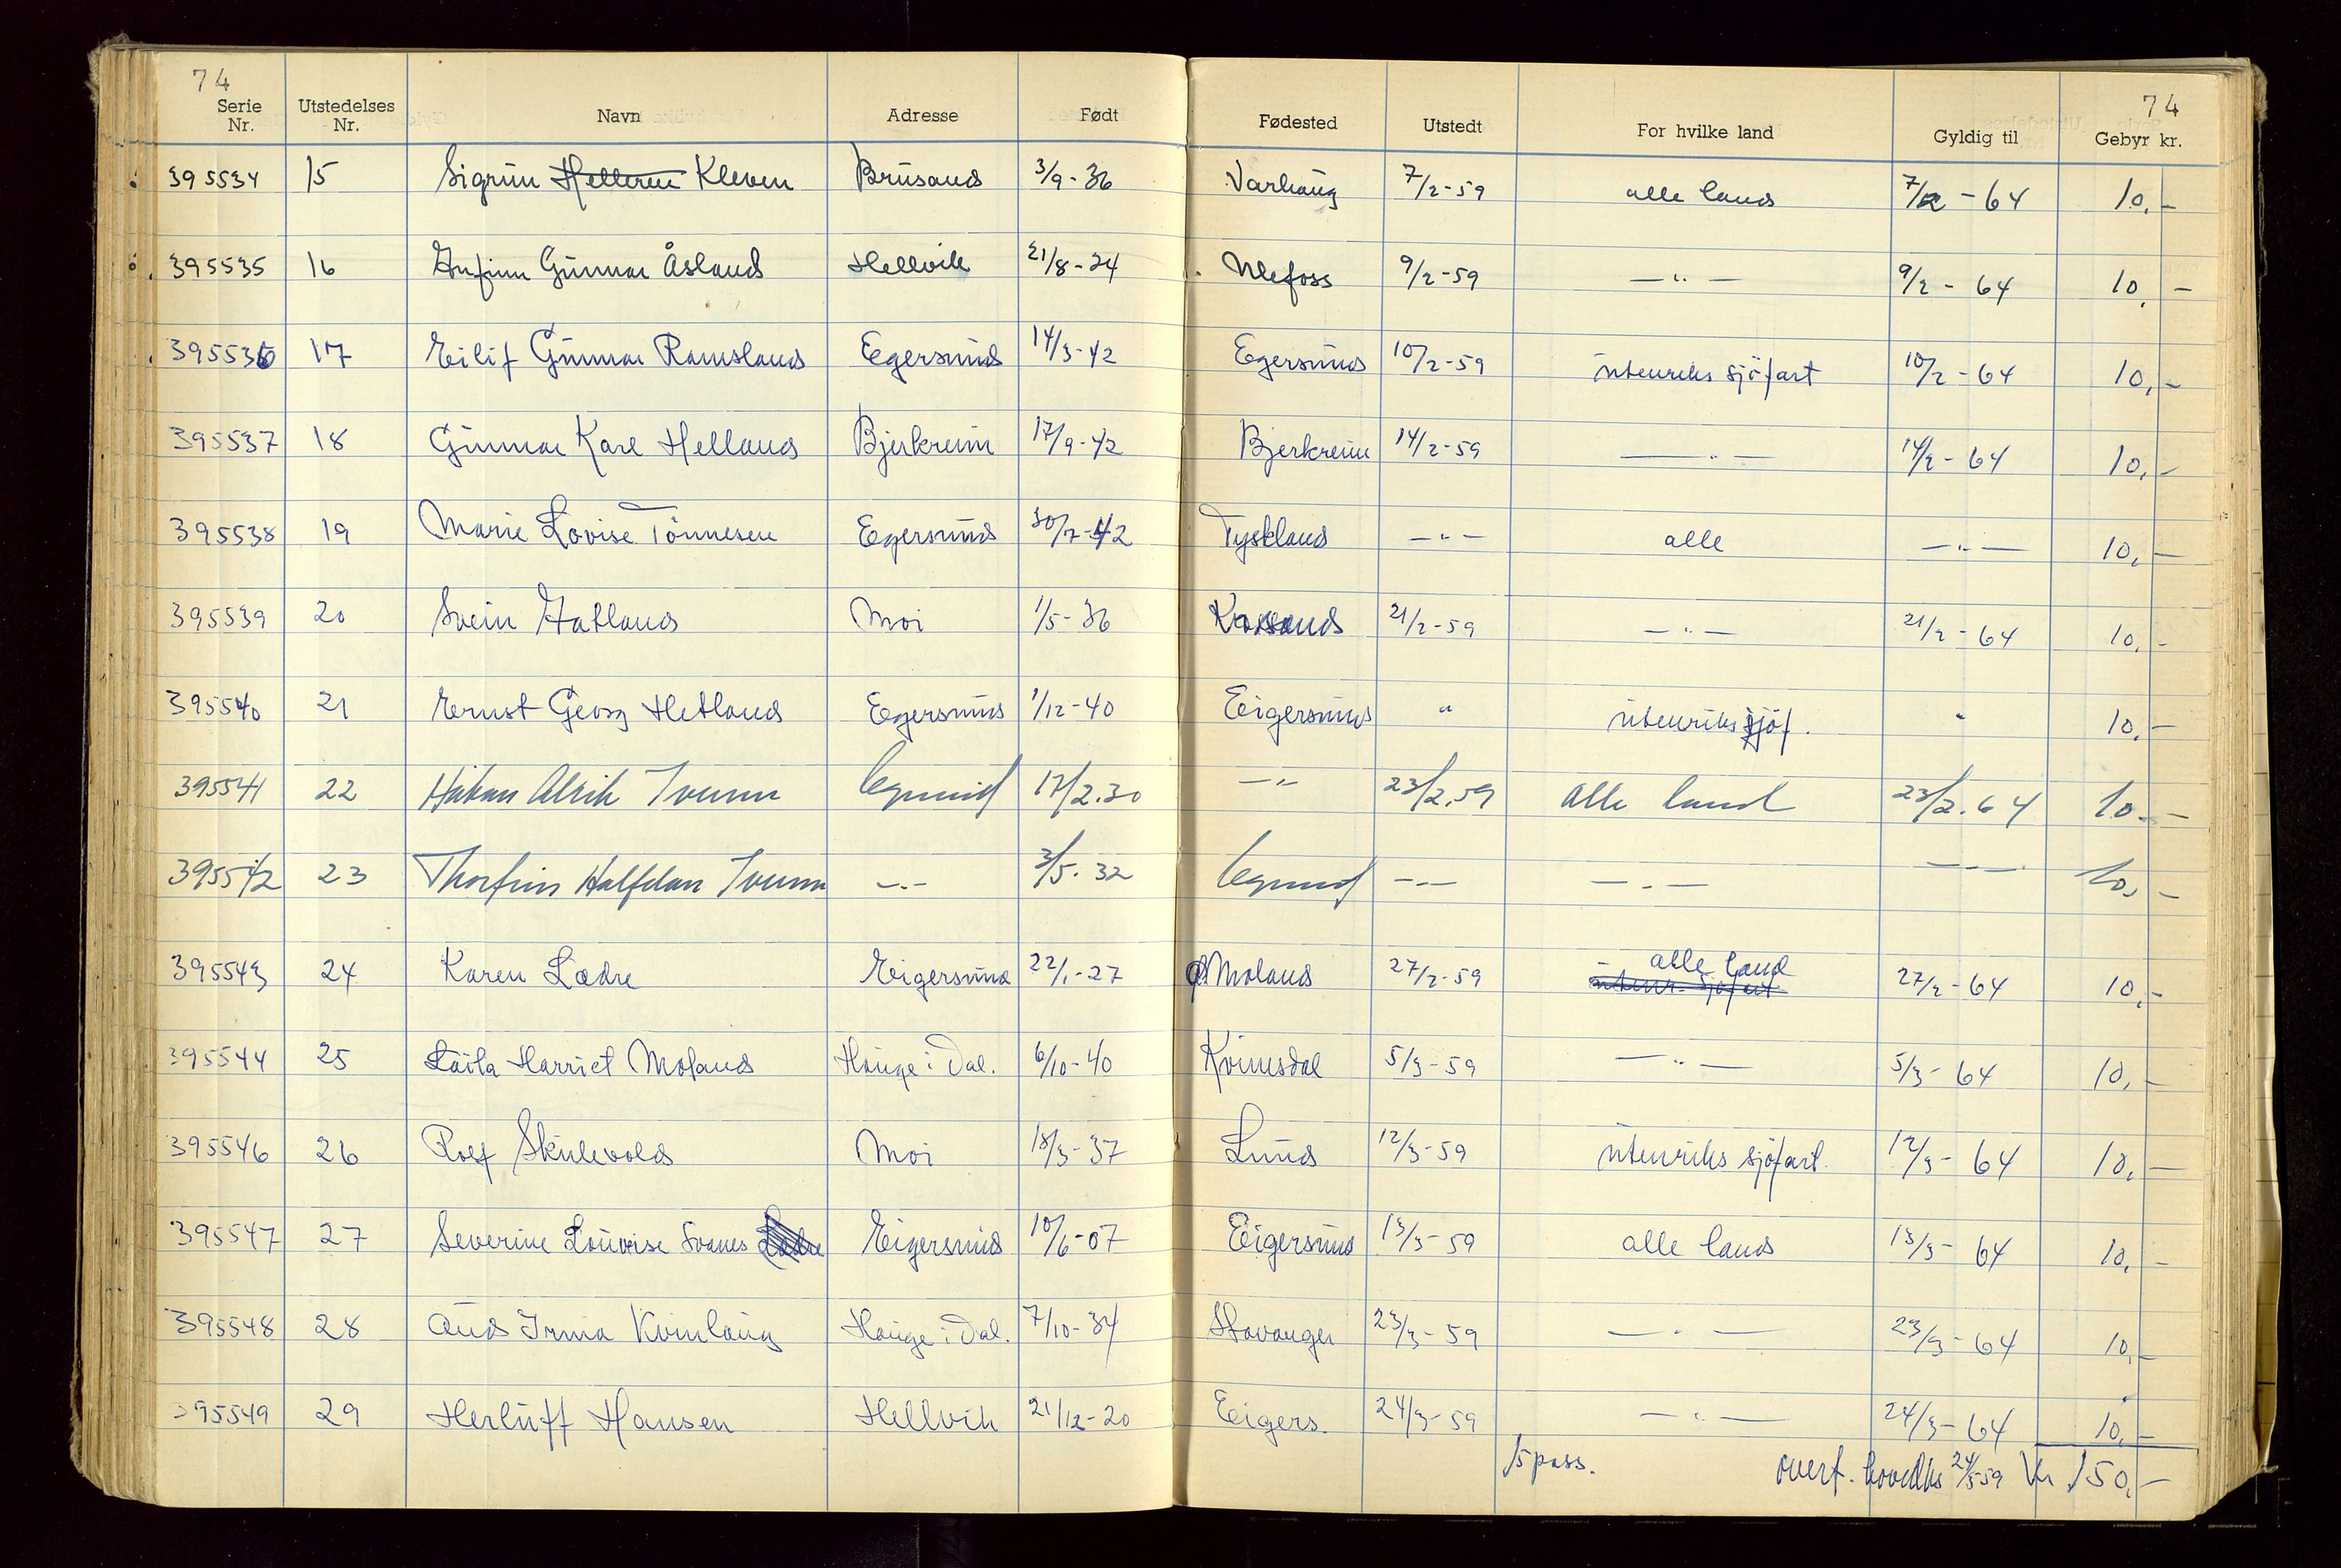 74 74
Serie Nr. Utstedelses Nr. Navn Adresse Født Fødested Utstedt For hvilke land Gyldig til Gebyr kr.
395534 15 Sigrun Helleren Kleven Brusand 3/9-36 Varhaug 7/2-59 alle land 7/2-64 10,-
395535 16 Gunnar Åsland Hellvik 21/8-24 Ulefoss 9/2-59 —"— 9/2-64 10,-
395536 17 Eilif Gunnar Ramsland Egersund 14/3-42 Egersund 10/2-59 utenriks sjöfart 10/2-64 10,-
395537 18 Gunnar Kare Helland Bjerkreim 17/9-42 Bjerkreim 14/2-59 —"— 14/2-64 10,-
395538 19 Marie Lovise Tönnesen Egersund 30/7-42 Tyskland —"— alle —"— 10,-
395539 20 Svein Hatland Moi 1/5-36 21/2-59 —"— 21/2-64 10,-
395540 21 Ernst Georg Hetland Egersund 1/12-40 Eigersund " utenriks sjöf. " 10,-
395541 22 Håkan Alrik Iversen Egersund 17/2.30 —"— 23/2.59 alle land 23/2.64 10.-
395542 23 Thorfinn Halfdan Iversen —"— 3/5.32 Egersund —"— —"— —"— 10,-
395543 24 Karen Lædre Eigersund 22/1-27 Moland 27/2-59 alle land utenr. sjöfart 27/2-64 10,-
395544 25 Laila Harriet Moland Hauge i Dal. 6/10-40 Kvinesdal 5/3-59 —"— 5/3-64 10,-
395546 26 Rolf Skulevold Moi 18/3-37 Lund 12/3-59 utenriks sjöfart. 12/3-64 10,-
395547 27 Severine Louvise Svanes Lædre Eigersund 10/6-07 Eigersund 13/3-59 alle land 13/3-64 10,-
395548 28 Aud Irma Kvinlaug Hauge i Dal. 7/10-34 Stavanger 23/3-59 —"— 23/3-64 10,-
395549 29 Herluff Hansen Hellvik 21/12-20 Eigers. 24/3-59 —"— 24/3-64 10,-
15 pass. overf. 24/3 59 Kr 150,-